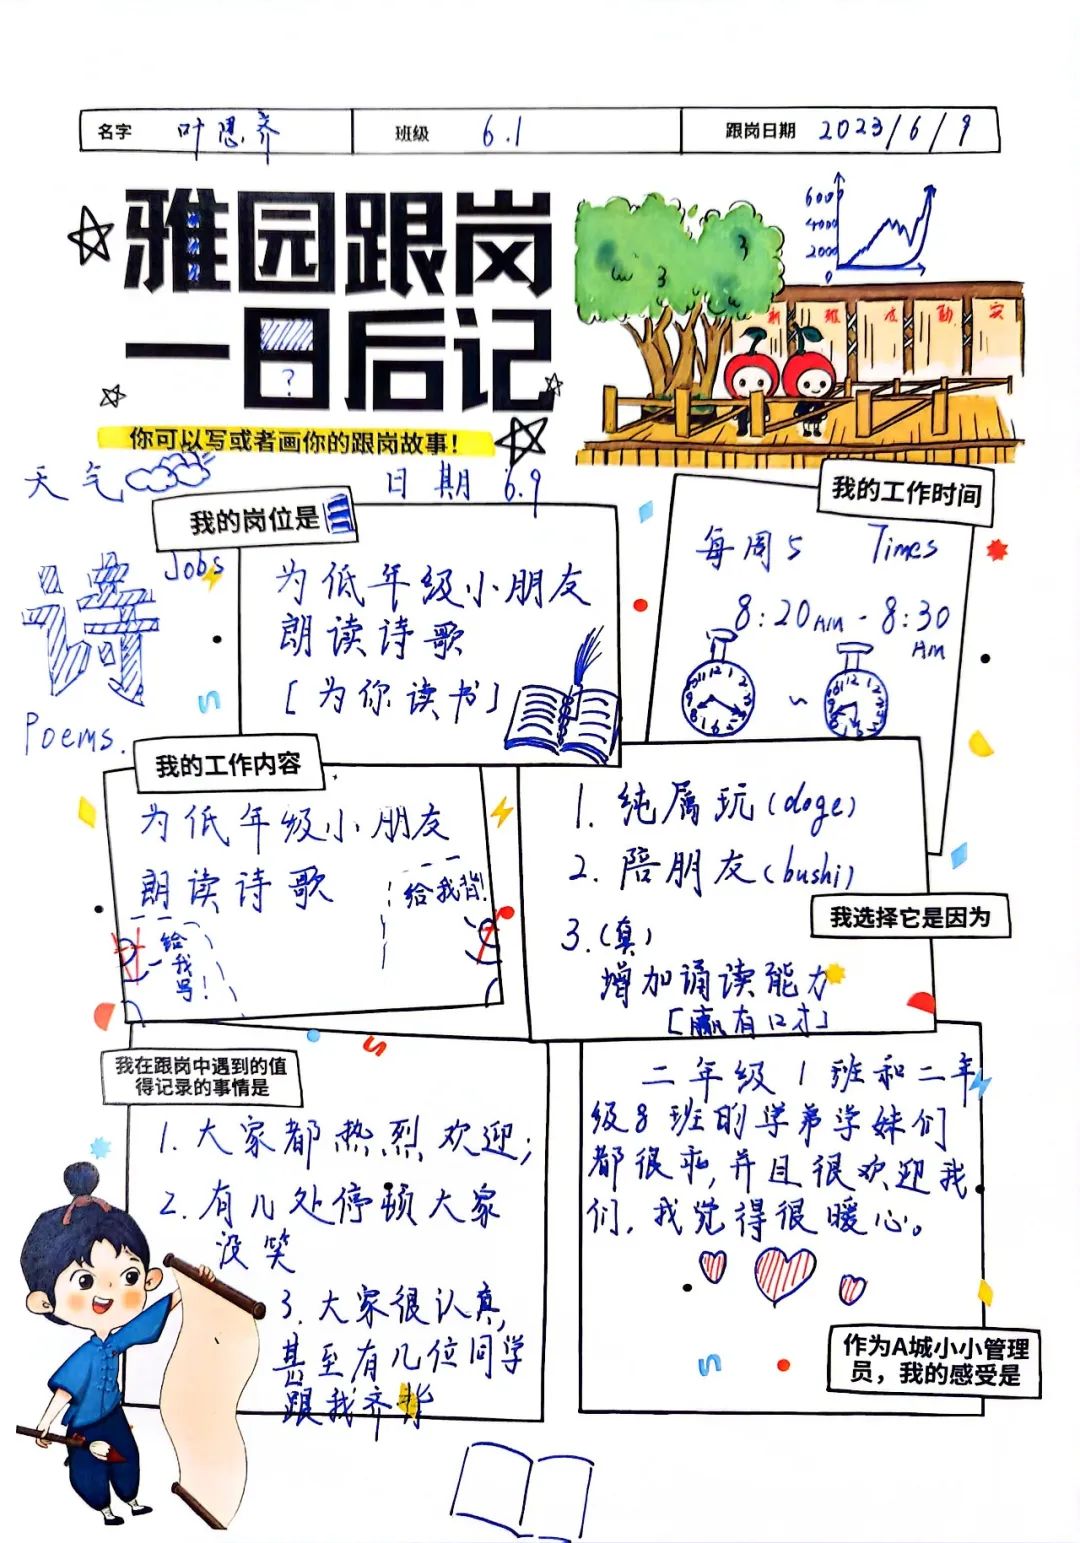 名字 叶思齐 班级 6.1 跟岗日期 2023/6/9
雅园跟岗
一日后记
?
你可以写或者画你的跟岗故事！
6000
4000
2000
0
新 雅 求 勤 实
天气 日期 6.9
我的岗位是
Jobs
为低年级小朋友
朗读诗歌
[为你读书]
诗
Poems.
我的工作时间
每周5 Times
8:20AM - 8:30
AM
~
我的工作内容
为低年级小朋友
朗读诗歌
给我背!
给
我
写!
1. 纯属玩(doge)
2. 陪朋友(bushi)
3.(真)
增加诵读能力
[赢有口才]
我选择它是因为
我在跟岗中遇到的值
得记录的事情是
1. 大家都热烈欢迎;
2. 有几处停顿大家
没笑
3. 大家很认真,
甚至有几位同学
跟我齐背
二年级1班和二年
级8班的学弟学妹们
都很乖,并且很欢迎我
们,我觉得很暖心。
作为A城小小管理
员，我的感受是